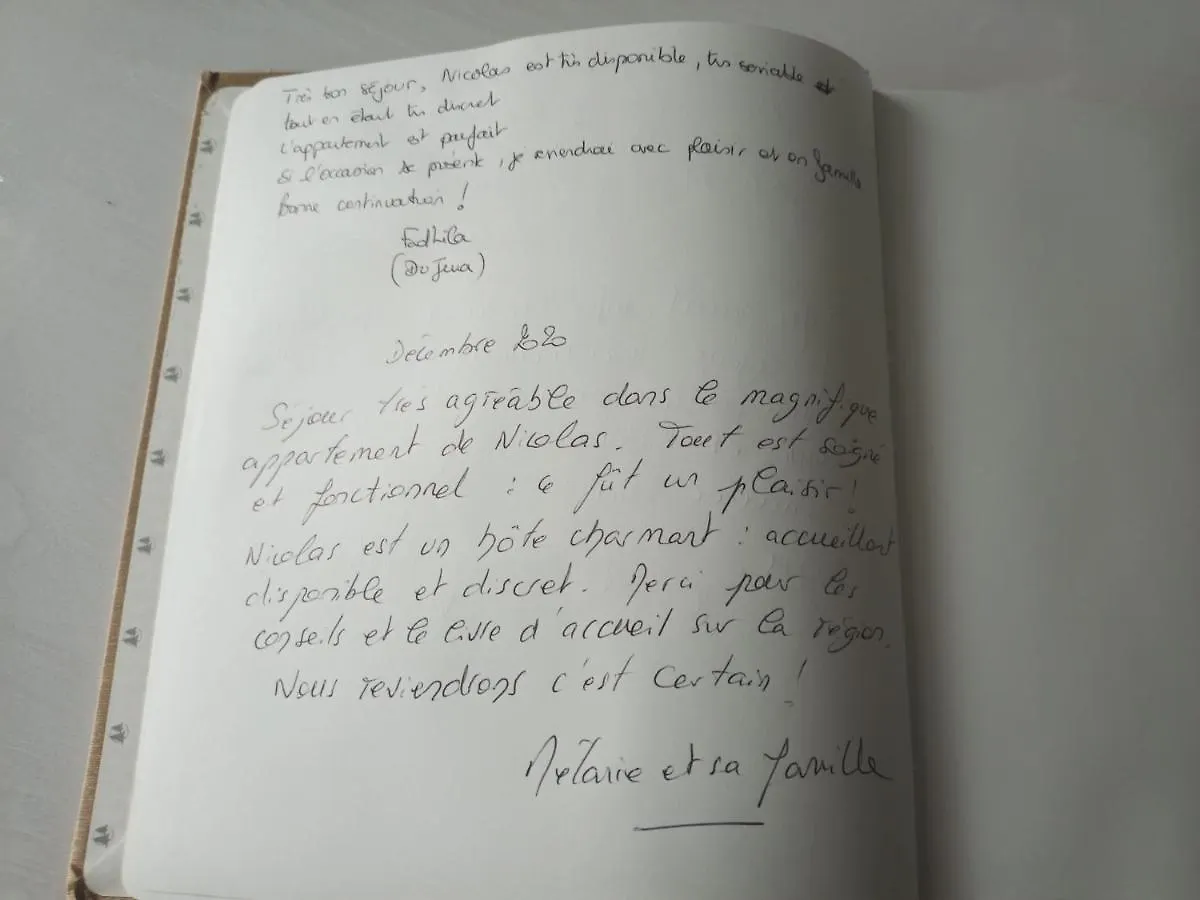 Très bon séjour, Nicolas est très disponible, très serviable et
tout en étant très discret
L'appartement est parfait
Si l'occasion se présente, je reviendrai avec plaisir et en famille
Bonne continuation !
Fadhila
(Du Jura)
Décembre 2020
Séjour très agréable dans le magnifique
appartement de Nicolas. Tout est soigné
et fonctionnel : ce fût un plaisir !
Nicolas est un hôte charmant : accueillant
disponible et discret. Merci pour les
conseils et le livre d'accueil sur la région.
Nous reviendrons c'est certain !
Mélanie et sa famille